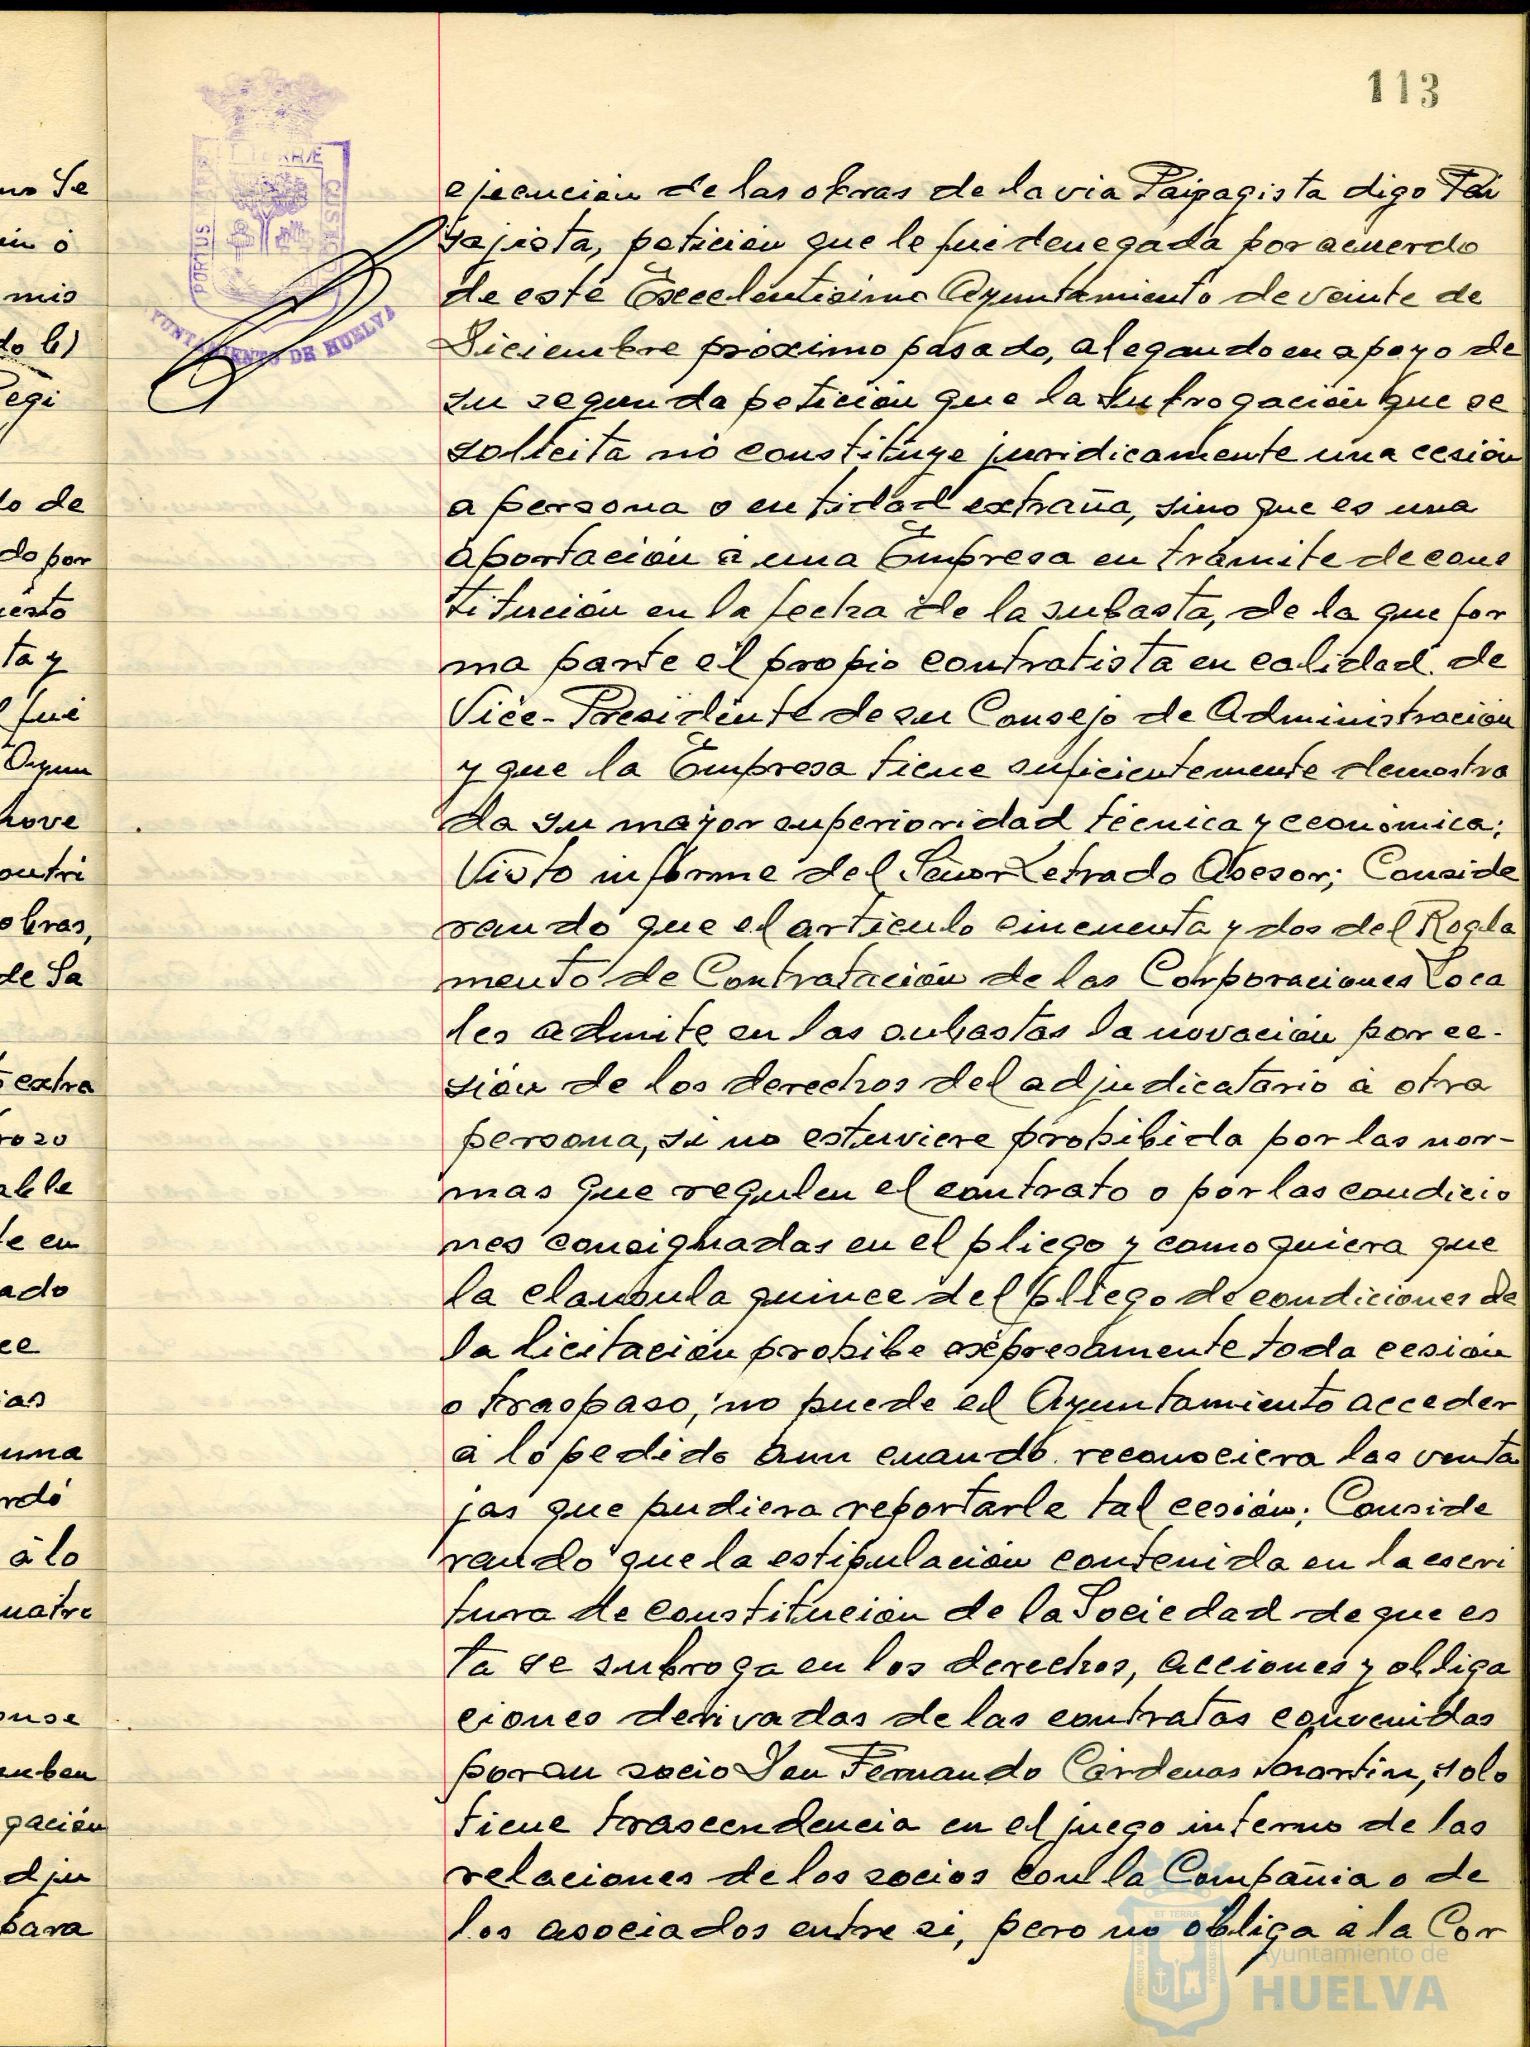 113
PORTUS MARIS ET TERRÆ CUSTODIA
AYUNTAMIENTO DE HUELVA
no Se
in ó
mis
do b)
Regi
do de
do por
uesto
ta y
fué
Ayun
nove
contri
obras,
de Sa
extra
rozo
able
te en
ado
ce
ias
una
rdó
á lo
uatro
onse
enben
gación
dju
para
ejecución de las obras de la via Paipagista digo Pai
sajista, petición que le fué denegada por acuerdo
de este Excelentísimo Ayuntamiento de veinte de
Diciembre próximo pasado, alegando en apoyo de
su segunda petición que la subrogación que se
solicita no constituye juridicamente una cesión
a persona o entidad extraña, sino que es una
aportación á una Empresa en trámite de cons
titución en la fecha de la subasta, de la que for
ma parte el propio contratista en calidad de
Vice-Presidente de su Consejo de Administración
y que la Empresa tiene suficientemente demostra
da su mayor superioridad técnica y económica;
Visto informe del Señor Letrado Asesor; Conside
rando que el artículo cincuenta y dos del Regla
mento de Contratación de las Corporaciones Loca
les admite en las subastas la novación por ce-
sión de los derechos del adjudicatario á otra
persona, si no estuviere prohibida por las nor-
mas que regulen el contrato o por las condicio
nes consignadas en el pliego y como quiera que
la clausula quince del pliego de condiciones de
la licitación prohibe expresamente toda cesión
o traspaso, no puede el Ayuntamiento acceder
á lo pedido aun cuando reconociera las venta
jas que pudiera reportarle tal cesión; Conside
rando que la estipulación contenida en la escri
tura de constitución de la Sociedad de que es
ta se subroga en los derechos, acciones y obliga
ciones derivadas de las contratas convenidas
por su socio Don Fernando Cárdenas Martín, solo
tiene trascendencia en el juego interno de las
relaciones de los socios con la Compañia o de
los asociados entre si, pero no obliga á la Cor
Ayuntamiento de
HUELVA